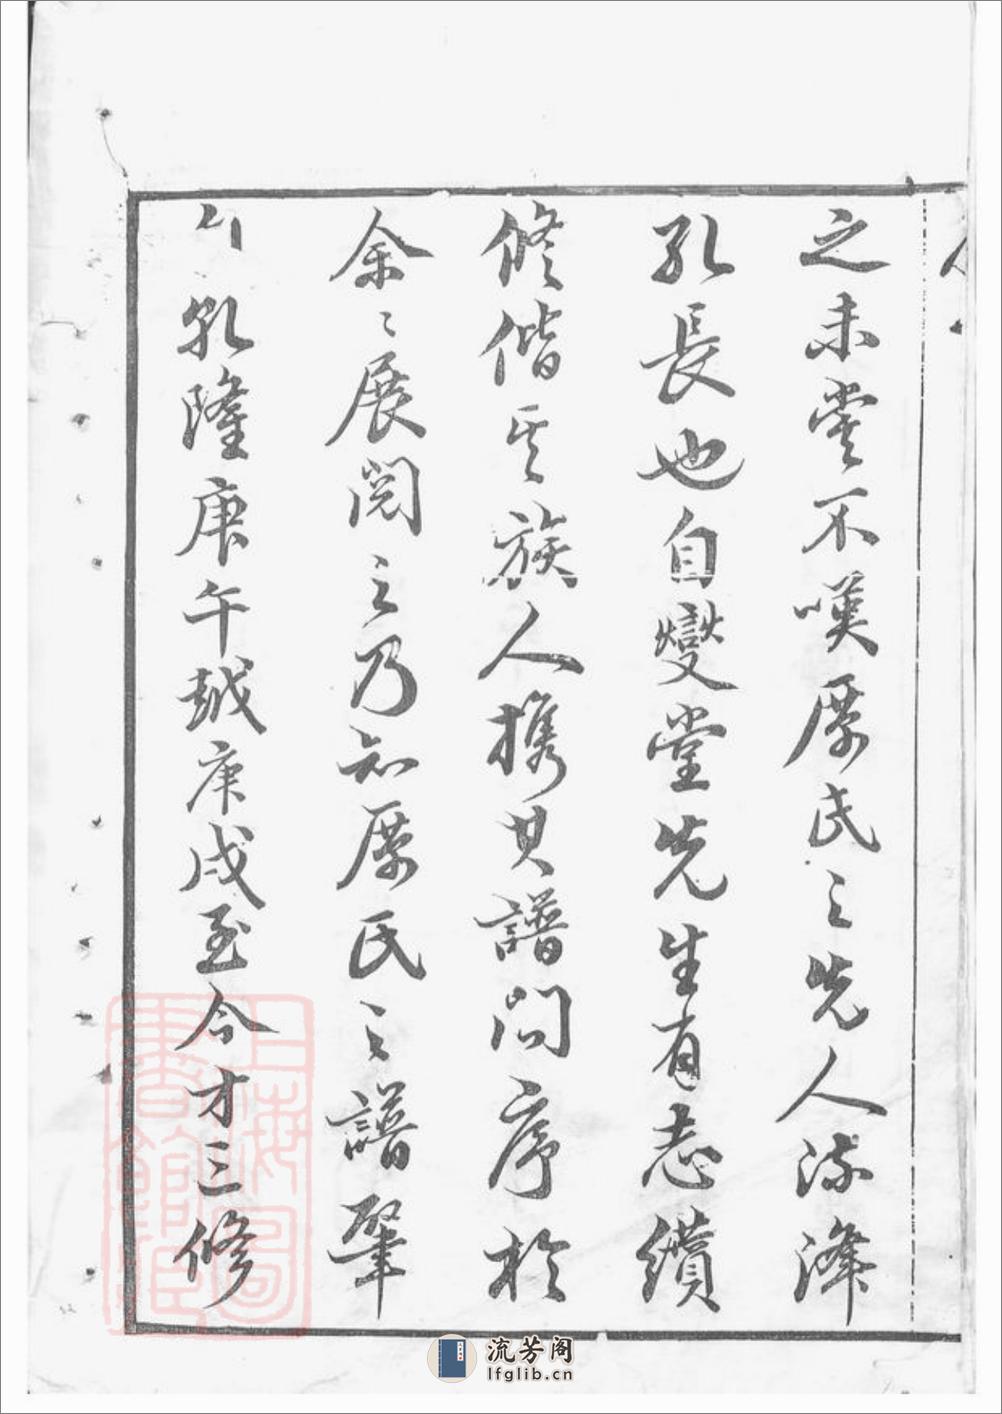 之未嘗不嘆厚氏之先人流澤
孔長也自燮堂先生有志續
修偕其族人携其譜問序於
余〻展閱之乃知厚氏之譜肇
於乾隆庚午越庚戌至今才三修
上海圖書館藏
流芳阁
lfglib.cn